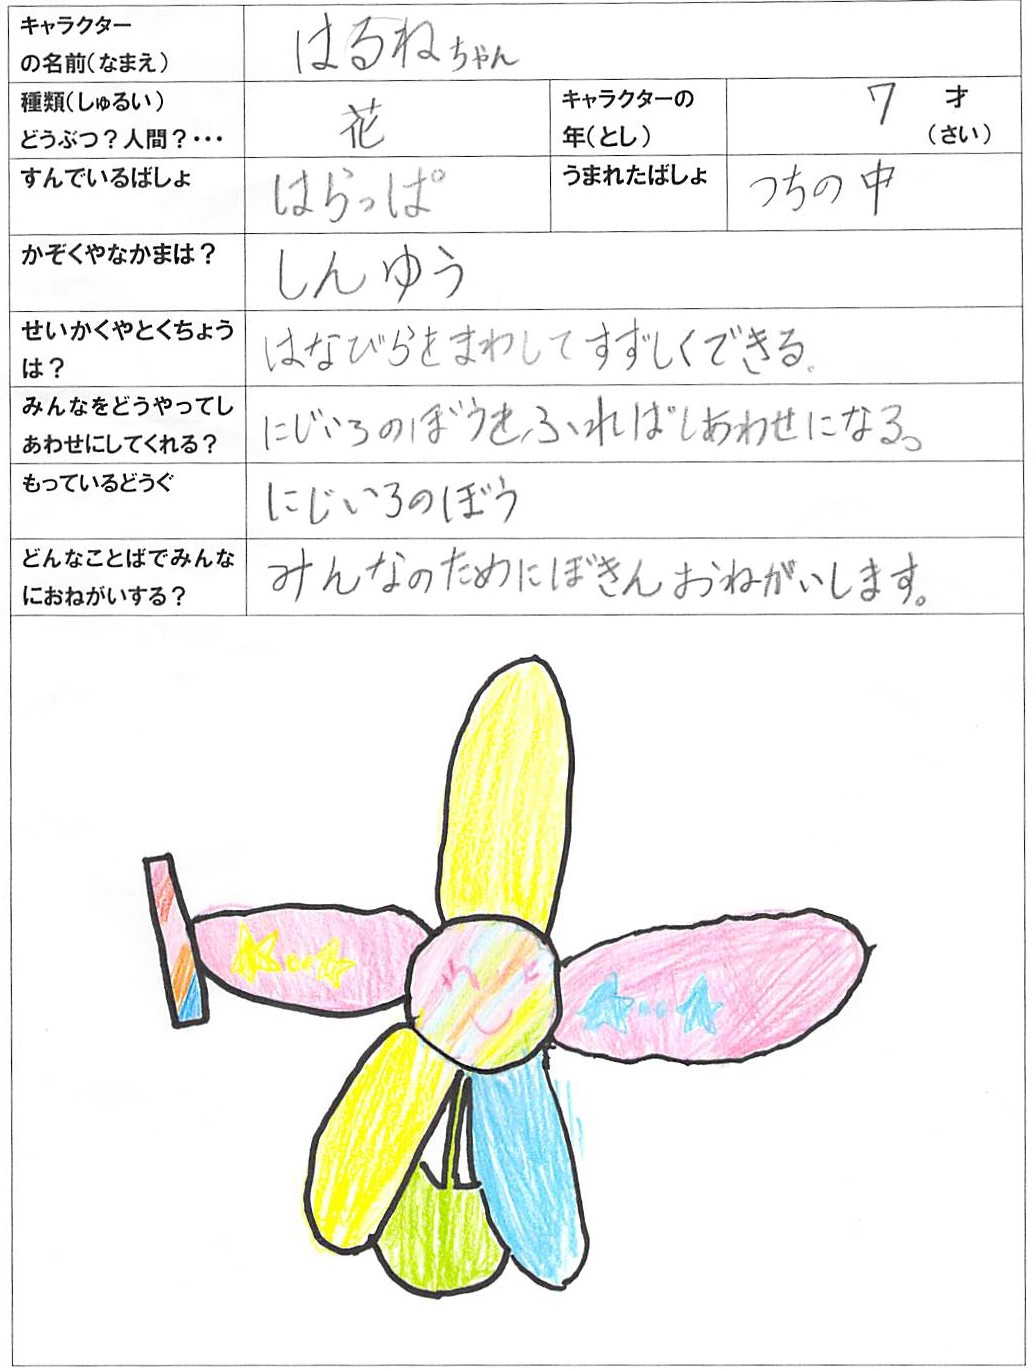 キャラクター
の名前(なまえ)
はるねちゃん
種類(しゅるい)
どうぶつ?人間?・・・
花
キャラクターの
年(とし)
7 才
(さい)
すんでいるばしょ
はらっぱ
うまれたばしょ
つちの中
かぞくやなかまは?
しんゆう
せいかくやとくちょう
は?
はなびらをまわしてすずしくできる。
みんなをどうやってし
あわせにしてくれる?
にじいろのぼうをふればしあわせになる。
もっているどうぐ
にじいろのぼう
どんなことばでみんな
におねがいする?
みんなのためにぼきんおねがいします。